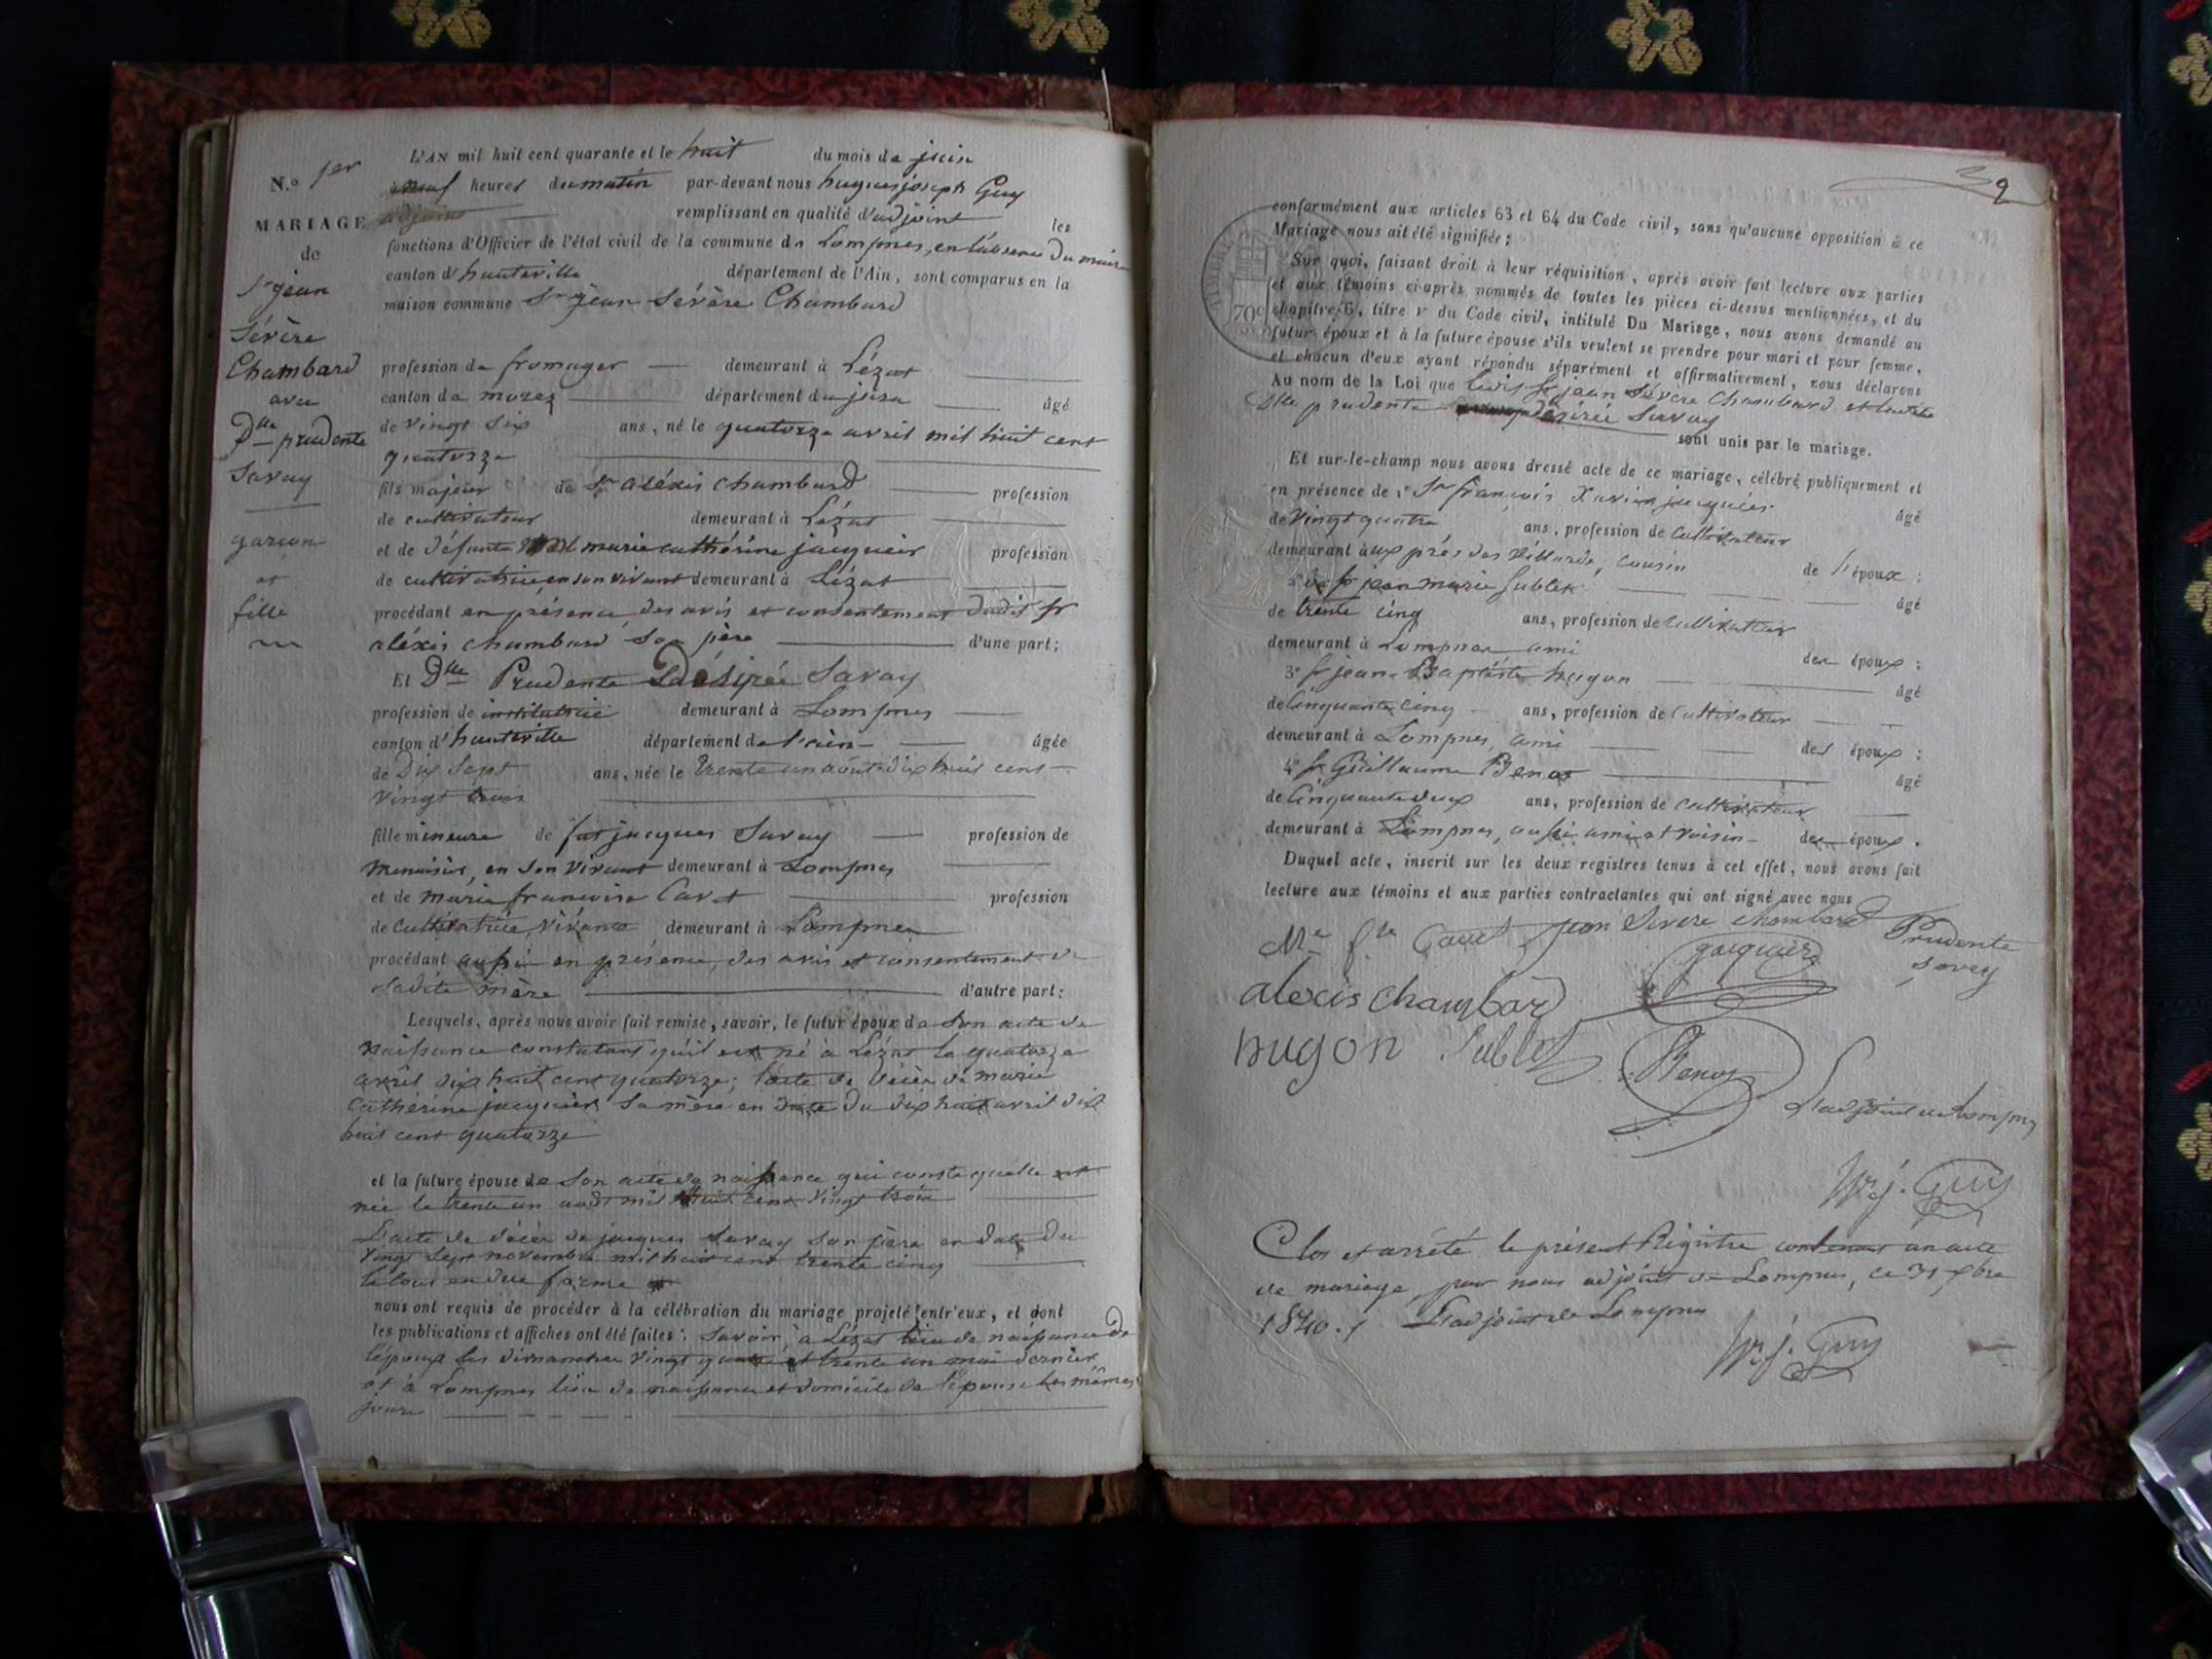 N.o 1er
MARIAGE
de
Sr jean
Sévère
Chambard
avec
Dlle prudente
Savay
garçon
et
fille
L'AN mil huit cent quarante et le huit du mois de juin
à neuf heures du matin par-devant nous hugues joseph Guy
adjoint remplissant en qualité d'adjoint les
fonctions d'Officier de l'état civil de la commune de Lompnes, en l'absence du maire
canton d'hauteville département de l'Ain, sont comparus en la
maison commune Sr jean Sévère Chambard
profession de fromager demeurant à Lézat
canton de morez département du jura âgé
de vingt six ans, né le quatorze avril mil huit cent
quatorze
fils majeur de Sr aléxis Chambard profession
de cultivateur demeurant à Lézat
et de défunte marie cathérine jacquier profession
de cultivatrice, en son vivant demeurant à Lézat
procédant en présence, des avis et consentement dudit sr
aléxis Chambard son père d'une part;
Et Dlle Prudente Désirée Savay
profession de institutrice demeurant à Lompnes
canton d'hauteville département de l'ain âgée
de Dix Sept ans, née le trente un août dix huit cent
vingt trois
fille mineure de jacques Savay profession de
menuisier, en son vivant demeurant à Lompnes
et de marie francoise Carot profession
de cultivatrice, vivante demeurant à Lompnes
procédant aussi en présence, des avis et consentement de
sadite mère d'autre part:
Lesquels, après nous avoir fait remise, savoir, le futur époux de son acte de
naissance constatant qu'il est né à Lézat le quatorze
avril dix huit cent quatorze; l'acte de décès de marie
Cathérine jacquier sa mère en date du dix huit avril dix
huit cent quatorze
et la future épouse de son acte de naissance qui conste quelle est
née le trente un août mil huit cent vingt trois
L'acte de décès de jacques Savay son père en date du
vingt sept novembre mil huit cent trente cinq
le tout en due forme
nous ont requis de procéder à la célébration du mariage projeté entr'eux, et dont
les publications et affiches ont été faites: savoir, à Lézat lieu de naissance de
l'époux les dimanches vingt quatre et trente un mai dernier
et à Lompnes lieu de naissance et domicile de l'épouse les mêmes
jours
2
conformément aux articles 63 et 64 du Code civil, sans qu'aucune opposition à ce
Mariage nous ait été signifiée;
Sur quoi, faisant droit à leur réquisition, après avoir fait lecture aux parties
et aux témoins ci-après nommés de toutes les pièces ci-dessus mentionnées, et du
chapitre 6, titre V du Code civil, intitulé Du Mariage, nous avons demandé au
futur époux et à la future épouse s'ils veulent se prendre pour mari et pour femme,
et chacun d'eux ayant répondu séparément et affirmativement, nous déclarons
Au nom de la Loi que ledit Sr jean Sévère Chambard et ladite
Dlle prudente désirée Savay
sont unis par le mariage.
Et sur-le-champ nous avons dressé acte de ce mariage, célébré publiquement et
en présence de 1° Sr françois Xavier jacquier âgé
de vingt quatre ans, profession de Cultivateur
demeurant aux près des Villards, cousin de l'époux:
2° Sr jean marie Sublet âgé
de trente cinq ans, profession de Cultivateur
demeurant à Lompnes ami des époux:
3° Sr jean-Baptiste hugon âgé
de Cinquante cinq ans, profession de Cultivateur
demeurant à Lompnes, ami des époux:
4° Sr Guillaume Benos âgé
de Cinquante deux ans, profession de Cultivateur
demeurant à Lompnes, aussi ami et voisin des époux.
Duquel acte, inscrit sur les deux registres tenus à cet effet, nous avons fait
lecture aux témoins et aux parties contractantes qui ont signé avec nous
jean Severe chambard Prudente
jacquier Savay
alexis chambard
hugon Sublet Benos
L'adjoint de Lompnes
hj. Guy
Clos et arrêté le présent Régistre contenant un acte
de mariage, par nous adjoint de Lompnes, ce 31 xbre
1840. L'adjoint de Lompnes
hj. Guy
70c